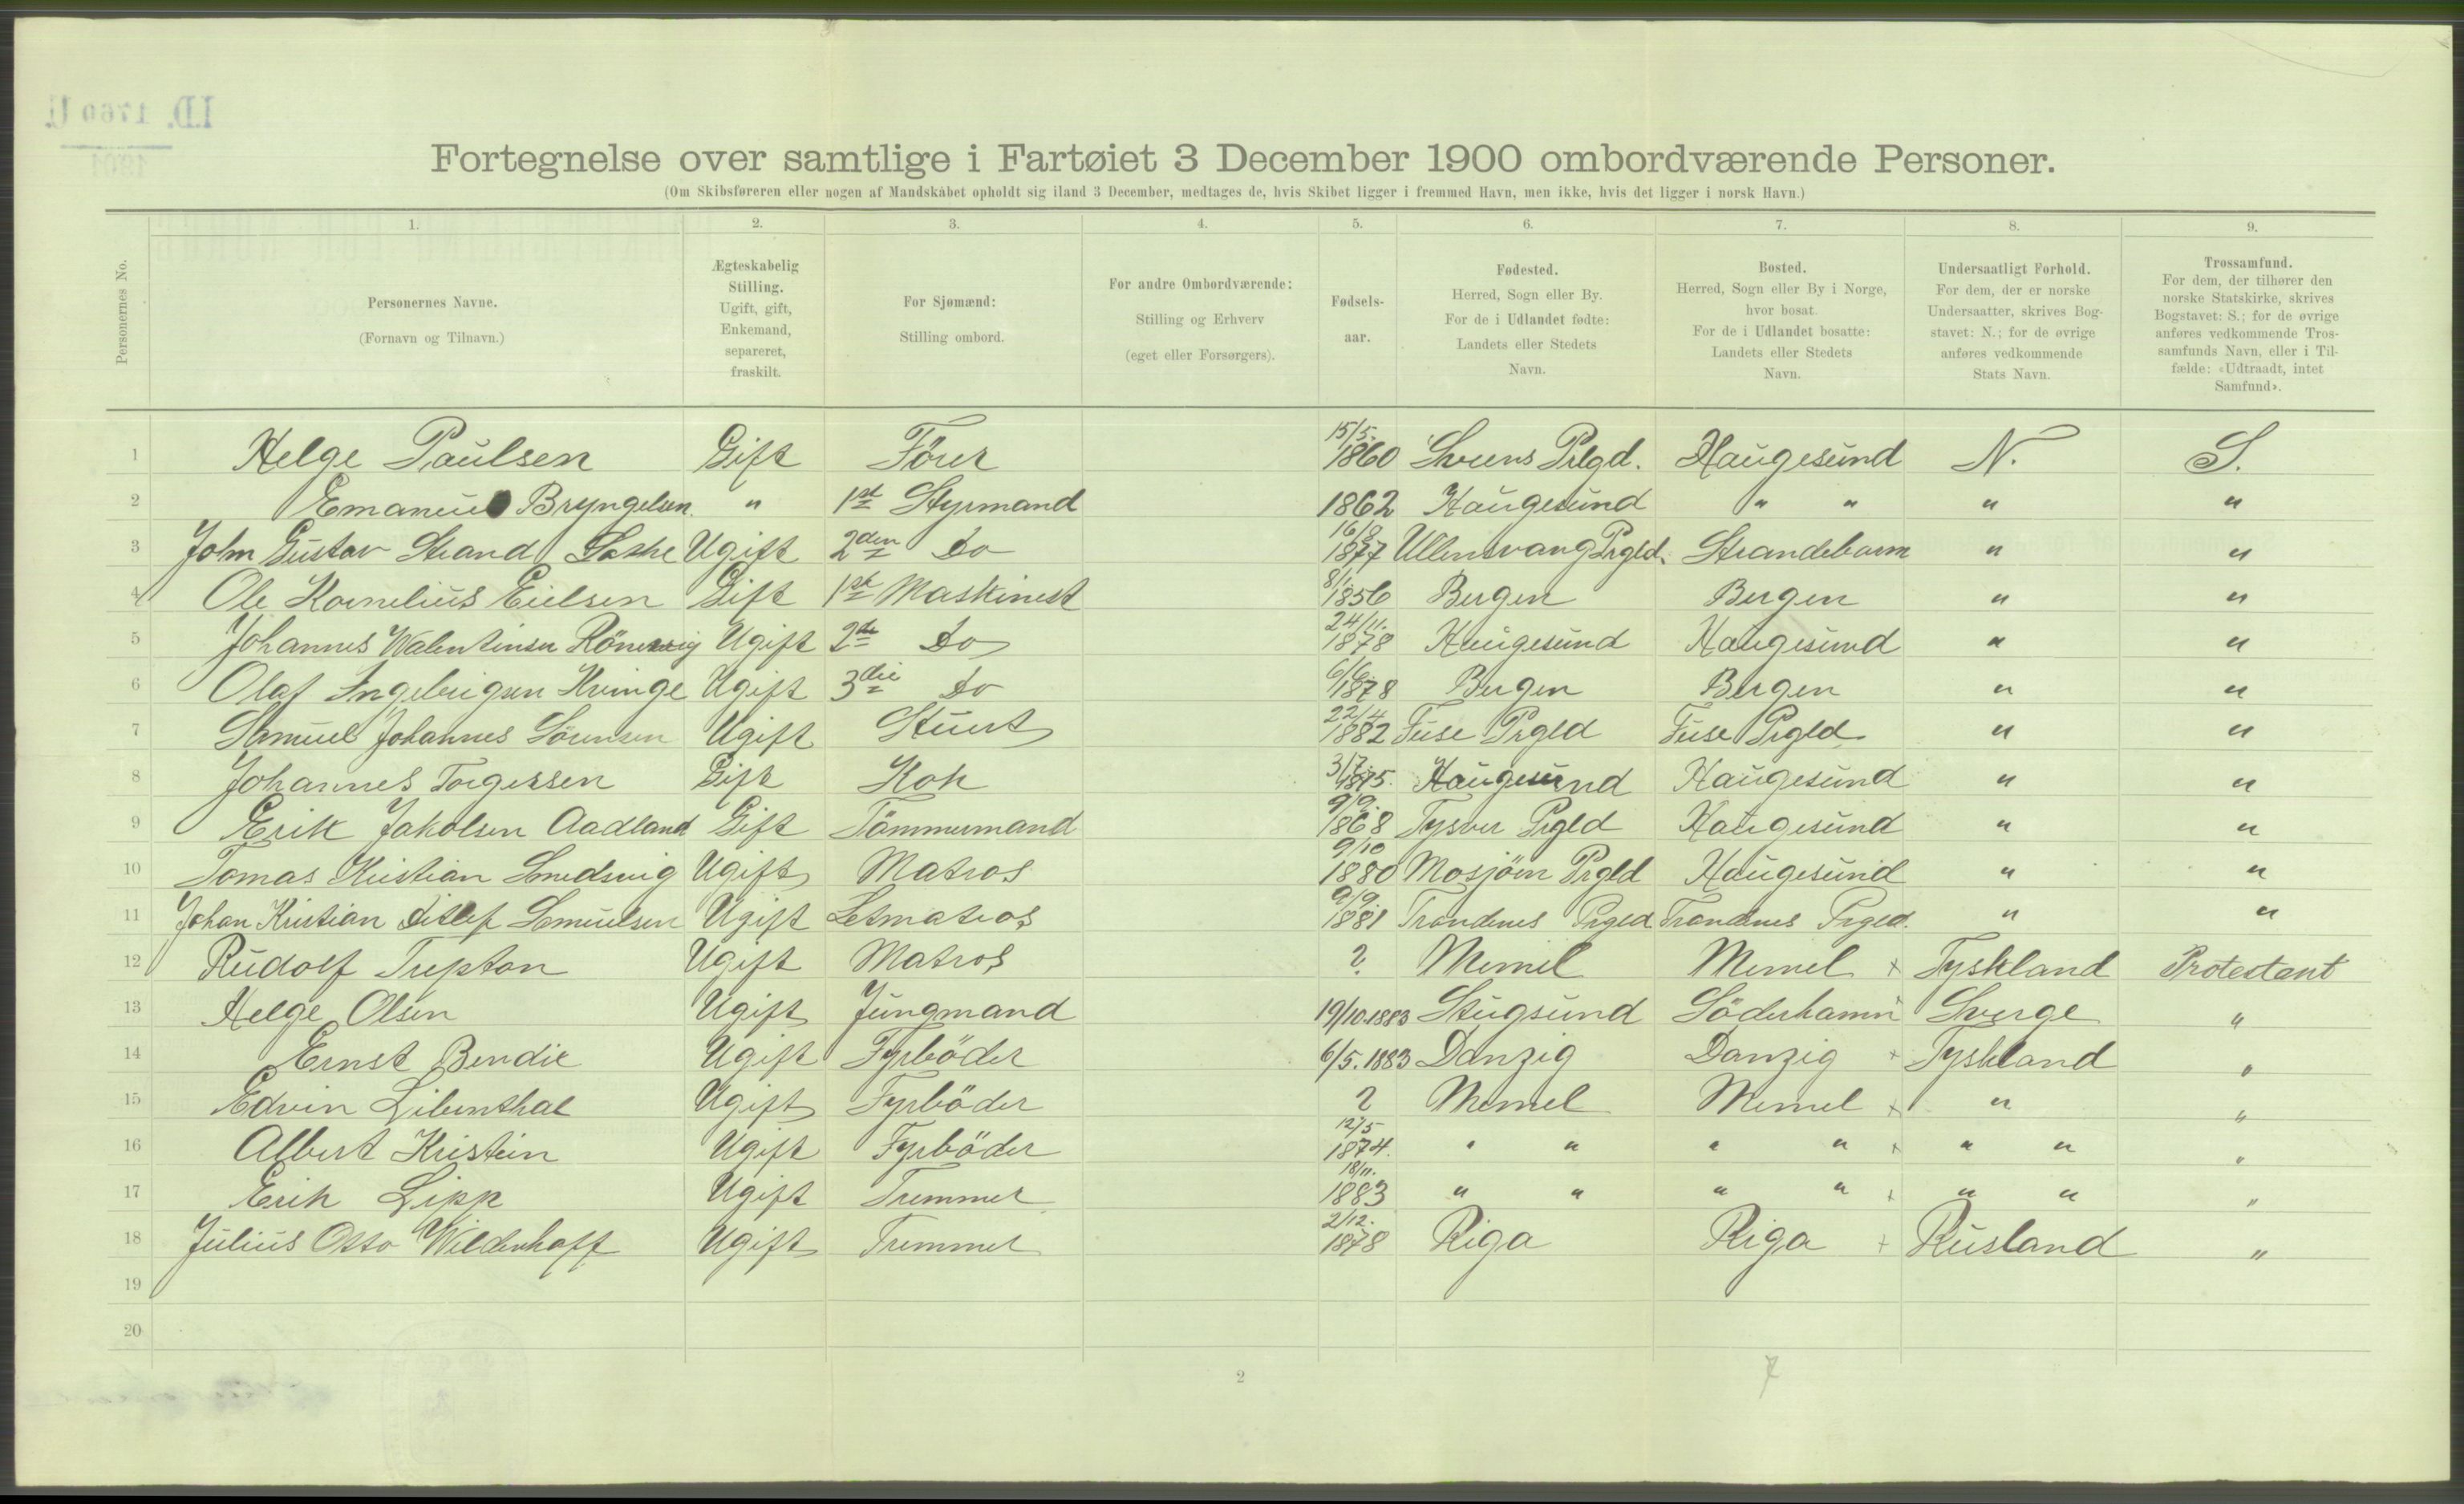 I.D. 1760 U.
1901
Fortegnelse over samtlige i Fartøiet 3 December 1900 ombordværende Personer.
(Om Skibsføreren eller nogen af Mandskabet opholdt sig iland 3 December, medtages de, hvis Skibet ligger i fremmed Havn, men ikke, hvis det ligger i norsk Havn.)
Personernes No.
1. 2. 3. 4. 5. 6. 7. 8. 9.
Personernes Navne.
(Fornavn og Tilnavn.)
Ægteskabelig
Stilling.
Ugift, gift,
Enkemand,
separeret,
fraskilt.
For Sjømænd:
Stilling ombord.
For andre Ombordværende:
Stilling og Erhverv
(eget eller Forsørgers).
Fødsels-
aar.
Fødested.
Herred, Sogn eller By.
For de i Udlandet fødte:
Landets eller Stedets
Navn.
Bosted.
Herred, Sogn eller By i Norge,
hvor bosat.
For de i Udlandet bosatte:
Landets eller Stedets
Navn.
Undersaatligt Forhold.
For dem, der er norske
Undersaatter, skrives Bog-
stavet: N.; for de øvrige
anføres vedkommende
Stats Navn.
Trossamfund.
For dem, der tilhører den
norske Statskirke, skrives
Bogstavet: S.; for de øvrige
anføres vedkommende Tros-
samfunds Navn, eller i Til-
fælde: «Udtraadt, intet
Samfund».
1 Helge Paulsen Gift Förer 15/5. 1860 Sveens Prlgd. Haugesund N. S.
2 Emanuel Bryngelsen. " 1st Styrmand 1862 Haugesund " " " "
3 John Gustav Strand Ugift 2den Do 16/8 1877 Ullensvang Prgld. Strandebarm " "
4 Ole Kornelius Eielsen Gift 1st Maskinest 8/1. 1856 Bergen Bergen " "
5 Johannes Walentinsen Rönevig Ugift 2de Do 24/11. 1878 Haugesund Haugesund " "
6 Olaf Ingebrigsen Kvinge Ugift 3die Do 6/6. 1878 Bergen Bergen " "
7 Samuel Johannes Sörensen Ugift Stuert 22/4 1882 Fuse Prgld Fuse Prgld. " "
8 Johannes Torgersen Gift Kok 3/7. 1875. Haugesund Haugesund " "
9 Erik Jakobsen Aadland Gift Tömmermand 9/9. 1868 Tysver Prgld Haugesund " "
10 Tomas Kristian Smedsvig Ugift Matros 9/10 1880 Mosjöen Prgld Haugesund " "
11 Johan Kristian Ditlef Samuelsen Ugift Letmatros 9/9. 1881 Trondenes Prgld Trondenes Prgld. " "
12 Rudolf Trepton Ugift Matros ? Memel Memel x Tyskland Protestant
13 Helge Olsen Ugift Jungmand 19/10.1883 Stugsund Söderhamn Sverge "
14 Ernst Bendic Ugift Fyrböder 6/5.1883 Danzig Danzig x Tyskland "
15 Edvin Libenthal Ugift Fyrböder ? Memel Memel x " "
16 Albert Kristein Ugift Fyrböder 12/5 1874. " " " " x " " "
17 Erik Lipp Ugift Tremmer 18/11. 1883 " " " " x " " "
18 Julius Otto Wildenhoff Ugift Tremmer 2/12. 1878 Riga Riga x Rusland "
19
20
2
7